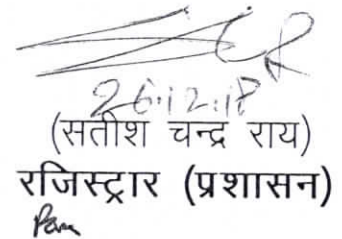 26.12.18
(सतीश चन्द्र राय)
रजिस्ट्रार (प्रशासन)